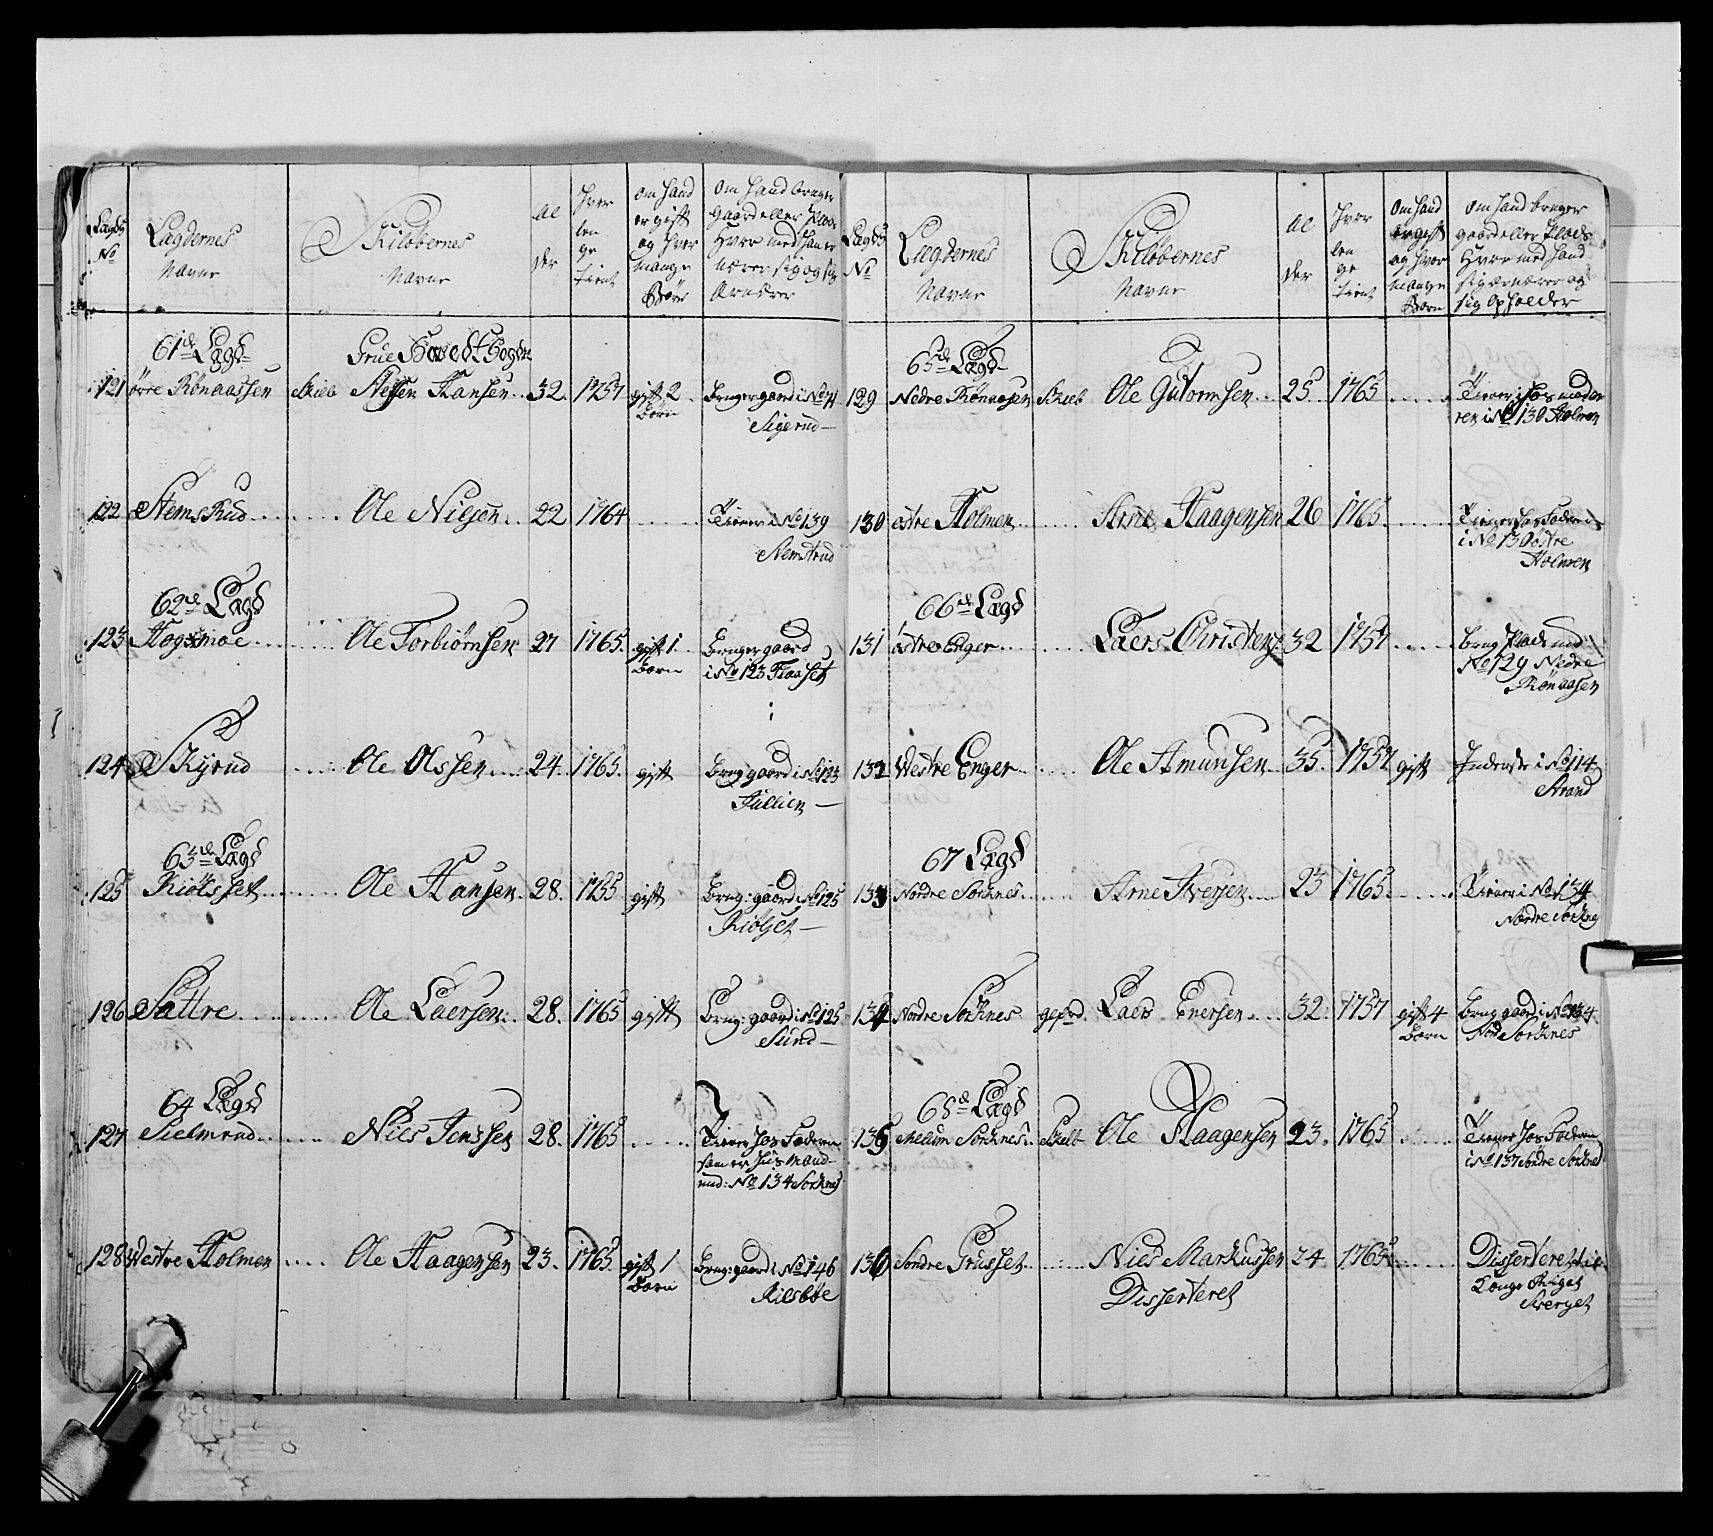 Lægds
No
Lægdernes
Navne
Skiløbernes
Navne
Al
der
Hver
len
ge
tient
Om hand
er gift
og hvor
mange
Børn
Om hand bruger
gaard eller Plads
Hvor med han er
nærer sig og sig
Ernærer
61de Lægd
Grue Hoved Sogn
121 øvre Rönaassen Skieb Steffen Hansen 32. 1757 gift 2 Bruger gaard i No 71
Børn Sigerud
122 Nemskud Ole Nilsen 22 1764 Tiener i No 139
Nemskud
62de Lægd
123 Hogsmoe Ole Torbiørnsen 27 1765. gift 1. Bruger gaard
Børn i No 123 Flaaset
124 Skyrud Ole Olssen 24. 1765. gift Brug gaard i No 123
Jullien
63de Lægd
125 Kiölsset Ole Hansen 28. 1755 gift Brug: gaard i No 125
Kiölset
126 Sættre Ole Laersen 28. 1765 gift Brug: gaard i No 125
Sund
64 Lægd
127 Sielmrud Nies Jenssen 28. 1765 Tiener hos Faderen
som er huusmand
und: No 134 Sorknes
128 Vestre Holmen Ole Haagensen 23. 1765 gift 1 Brug: gaard i No 146
Børn Kilsböe
Lægds
No
Lægdernes
Navne
Skiløbernes
Navne
Al
der
Hvor
len
ge
tient
Om hand
er gift
og hvor
mange
Børn
Om hand bruger
gaard eller Plads
Hvor med hand
sig ernærer og
sig opholder
65de Lægd
129 Nedre Rönaasen Skieb Ole Gutormsen 25. 1765 Tiener hos moder
ren i No 130 Holmen
130 østre Holmen Arne Haagensen 26 1765. Tiener hos Faderen
i No 130 østre
Holmen
66de Lægd
131 østre Enger Laers Christens: 32 1757 Brug Plads und
No 129 Nedre
Rönaasen
132 Westre Enger Ole Amunsen 35. 1757 gift Inderste i No 114
Strand
67 Lægd
133 Nordre Sorknes Arne Iversen 23 1765. Tiener i No 134
Nordre Sorknes
134 Nordre Sorknes gefrd Laers Enersen 32. 1757 gift 4 Brug gaard i No 134
Børn Nor Sorknes
68de Lægd
135 Mellum Sorknes Skieb Ole Haagensen 23. 1765 Tiener hos Faderen
i No 137 Söndre Sorknes
136 Söndre Grusset Nies Markussen 24 1765 Disserteret til
Disserteret Konge Riget
Sverget